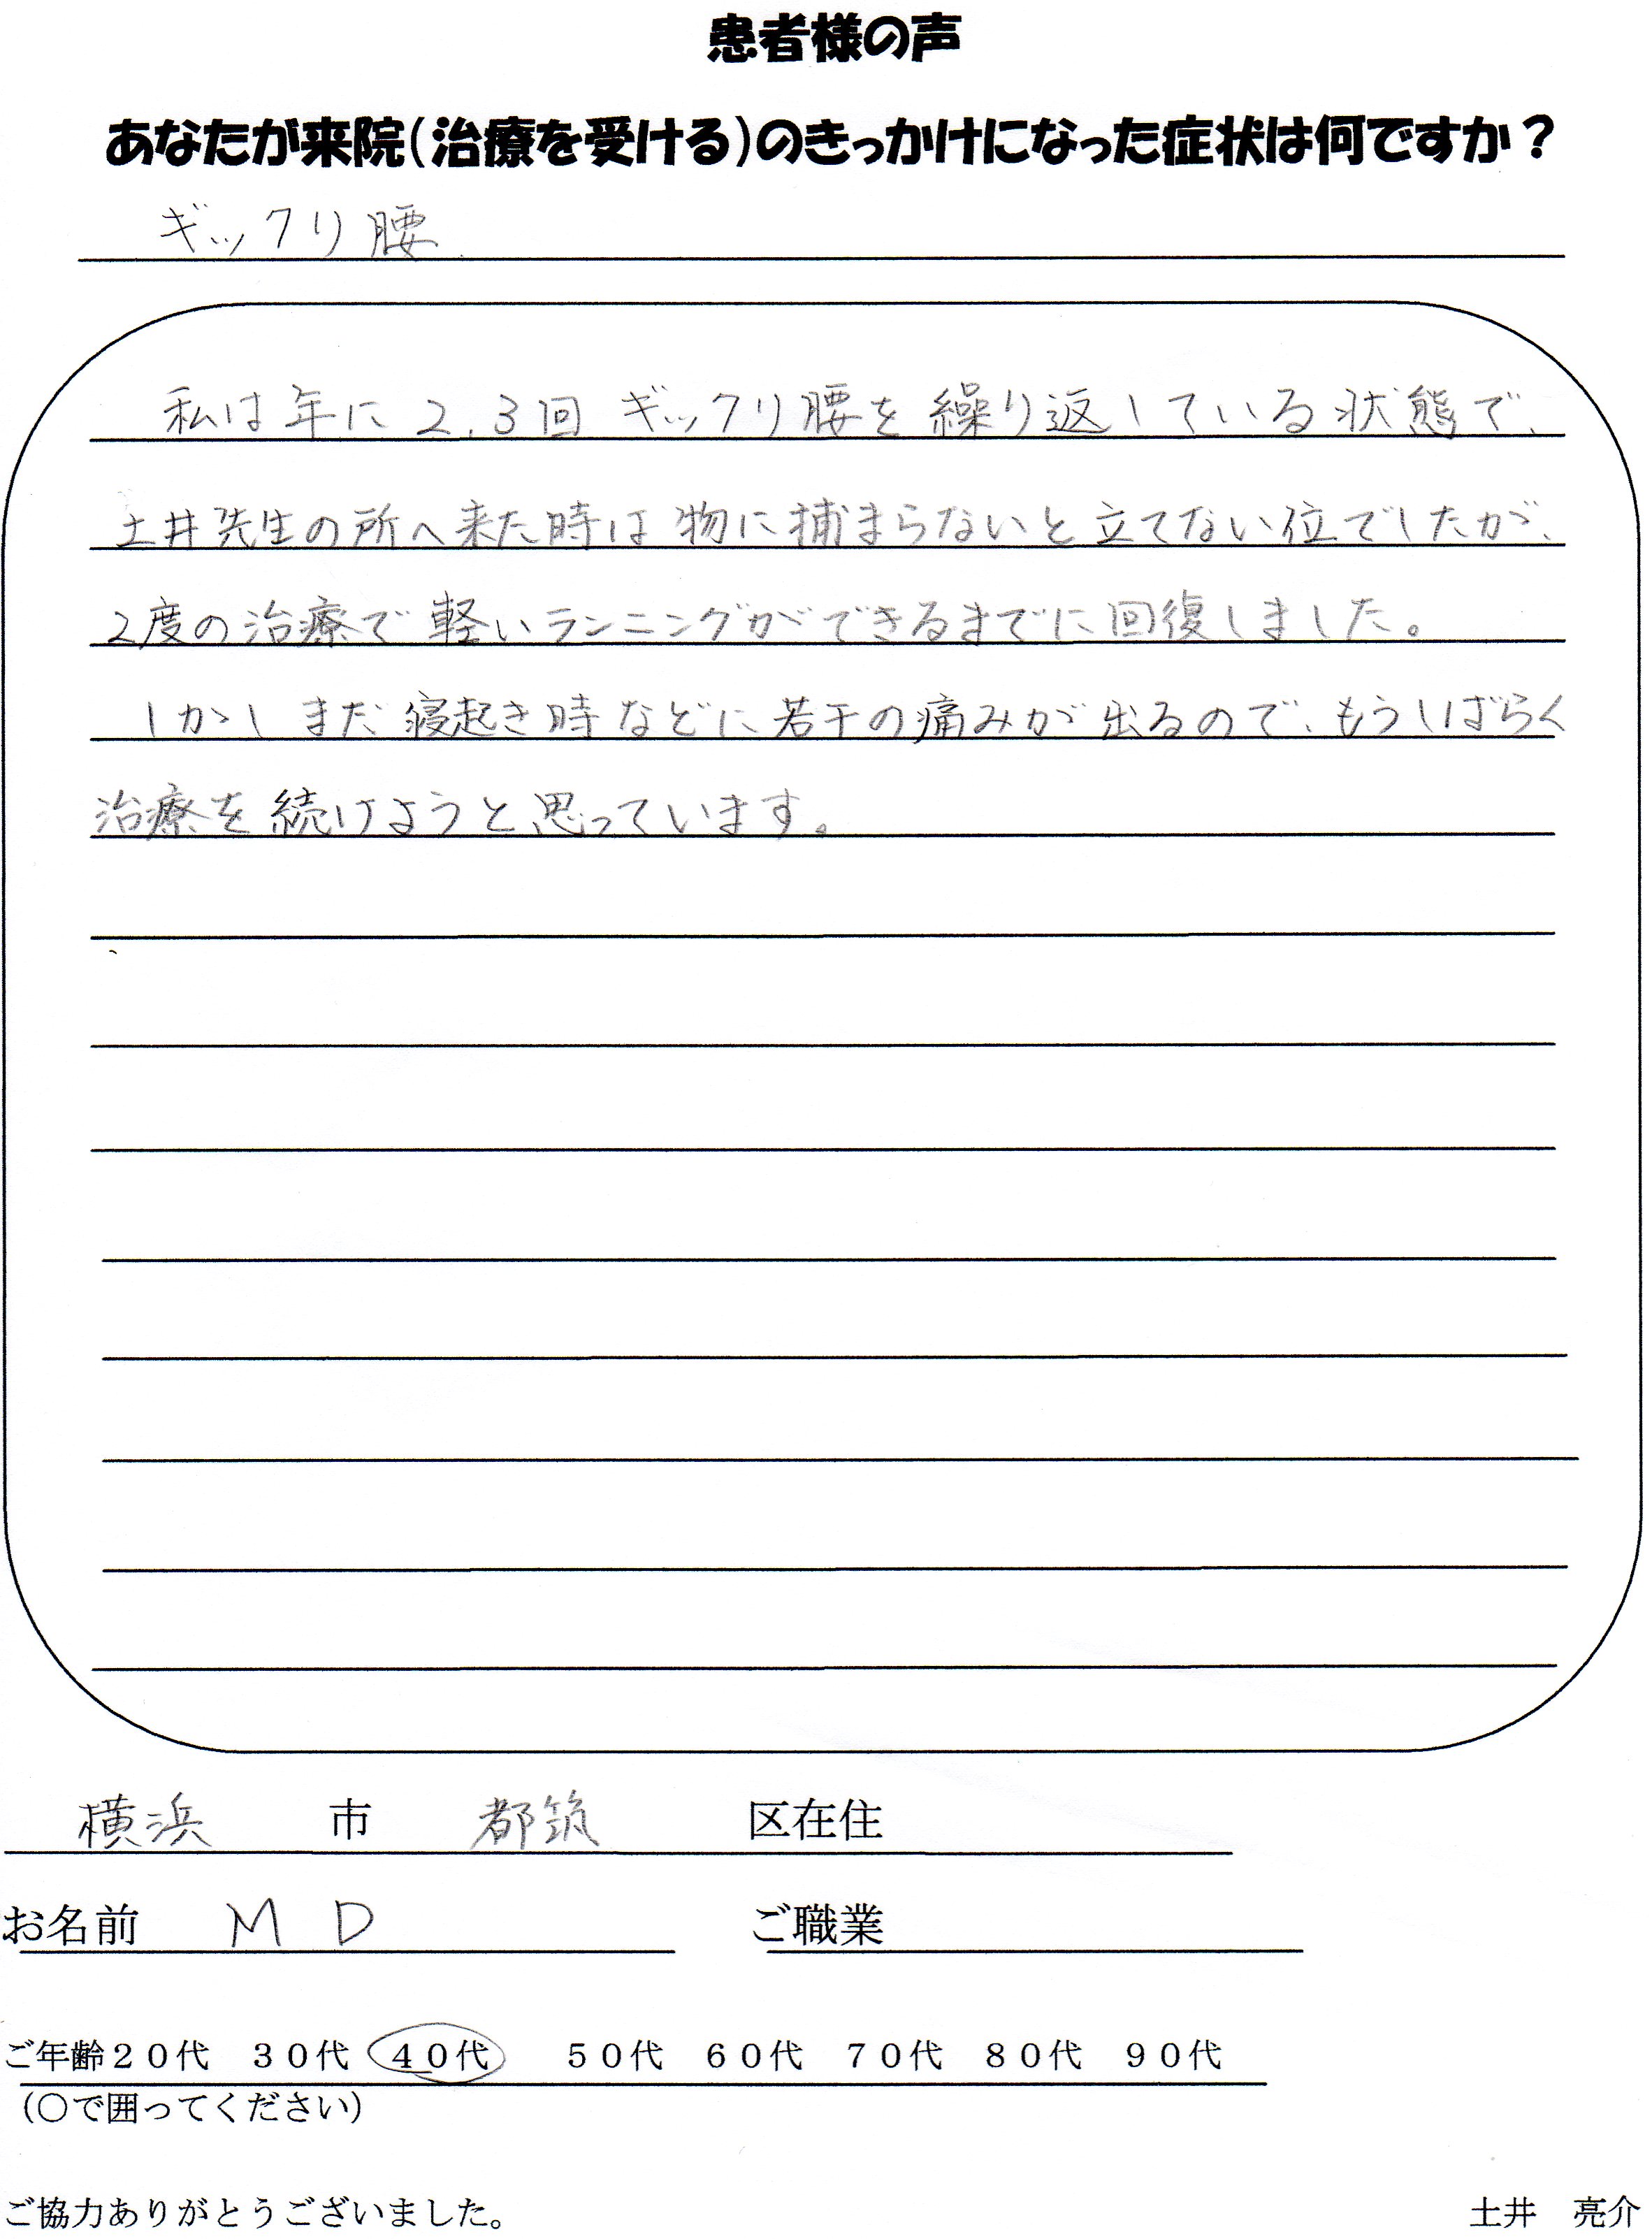 患者様の声
あなたが来院（治療を受ける）のきっかけになった症状は何ですか？
ギックリ腰
私は年に2,3回ギックリ腰を繰り返している状態で、
土井先生の所へ来た時は物に捕まらないと立てない位でしたが、
2度の治療で軽いランニングができるまでに回復しました。
しかしまだ寝起き時などに若干の痛みが出るので、もうしばらく
治療を続けようと思っています。
横浜 市 都筑 区在住
お名前 M D ご職業
ご年齢２０代 ３０代 ４０代 ５０代 ６０代 ７０代 ８０代 ９０代
（〇で囲ってください）
ご協力ありがとうございました。 土井 亮介